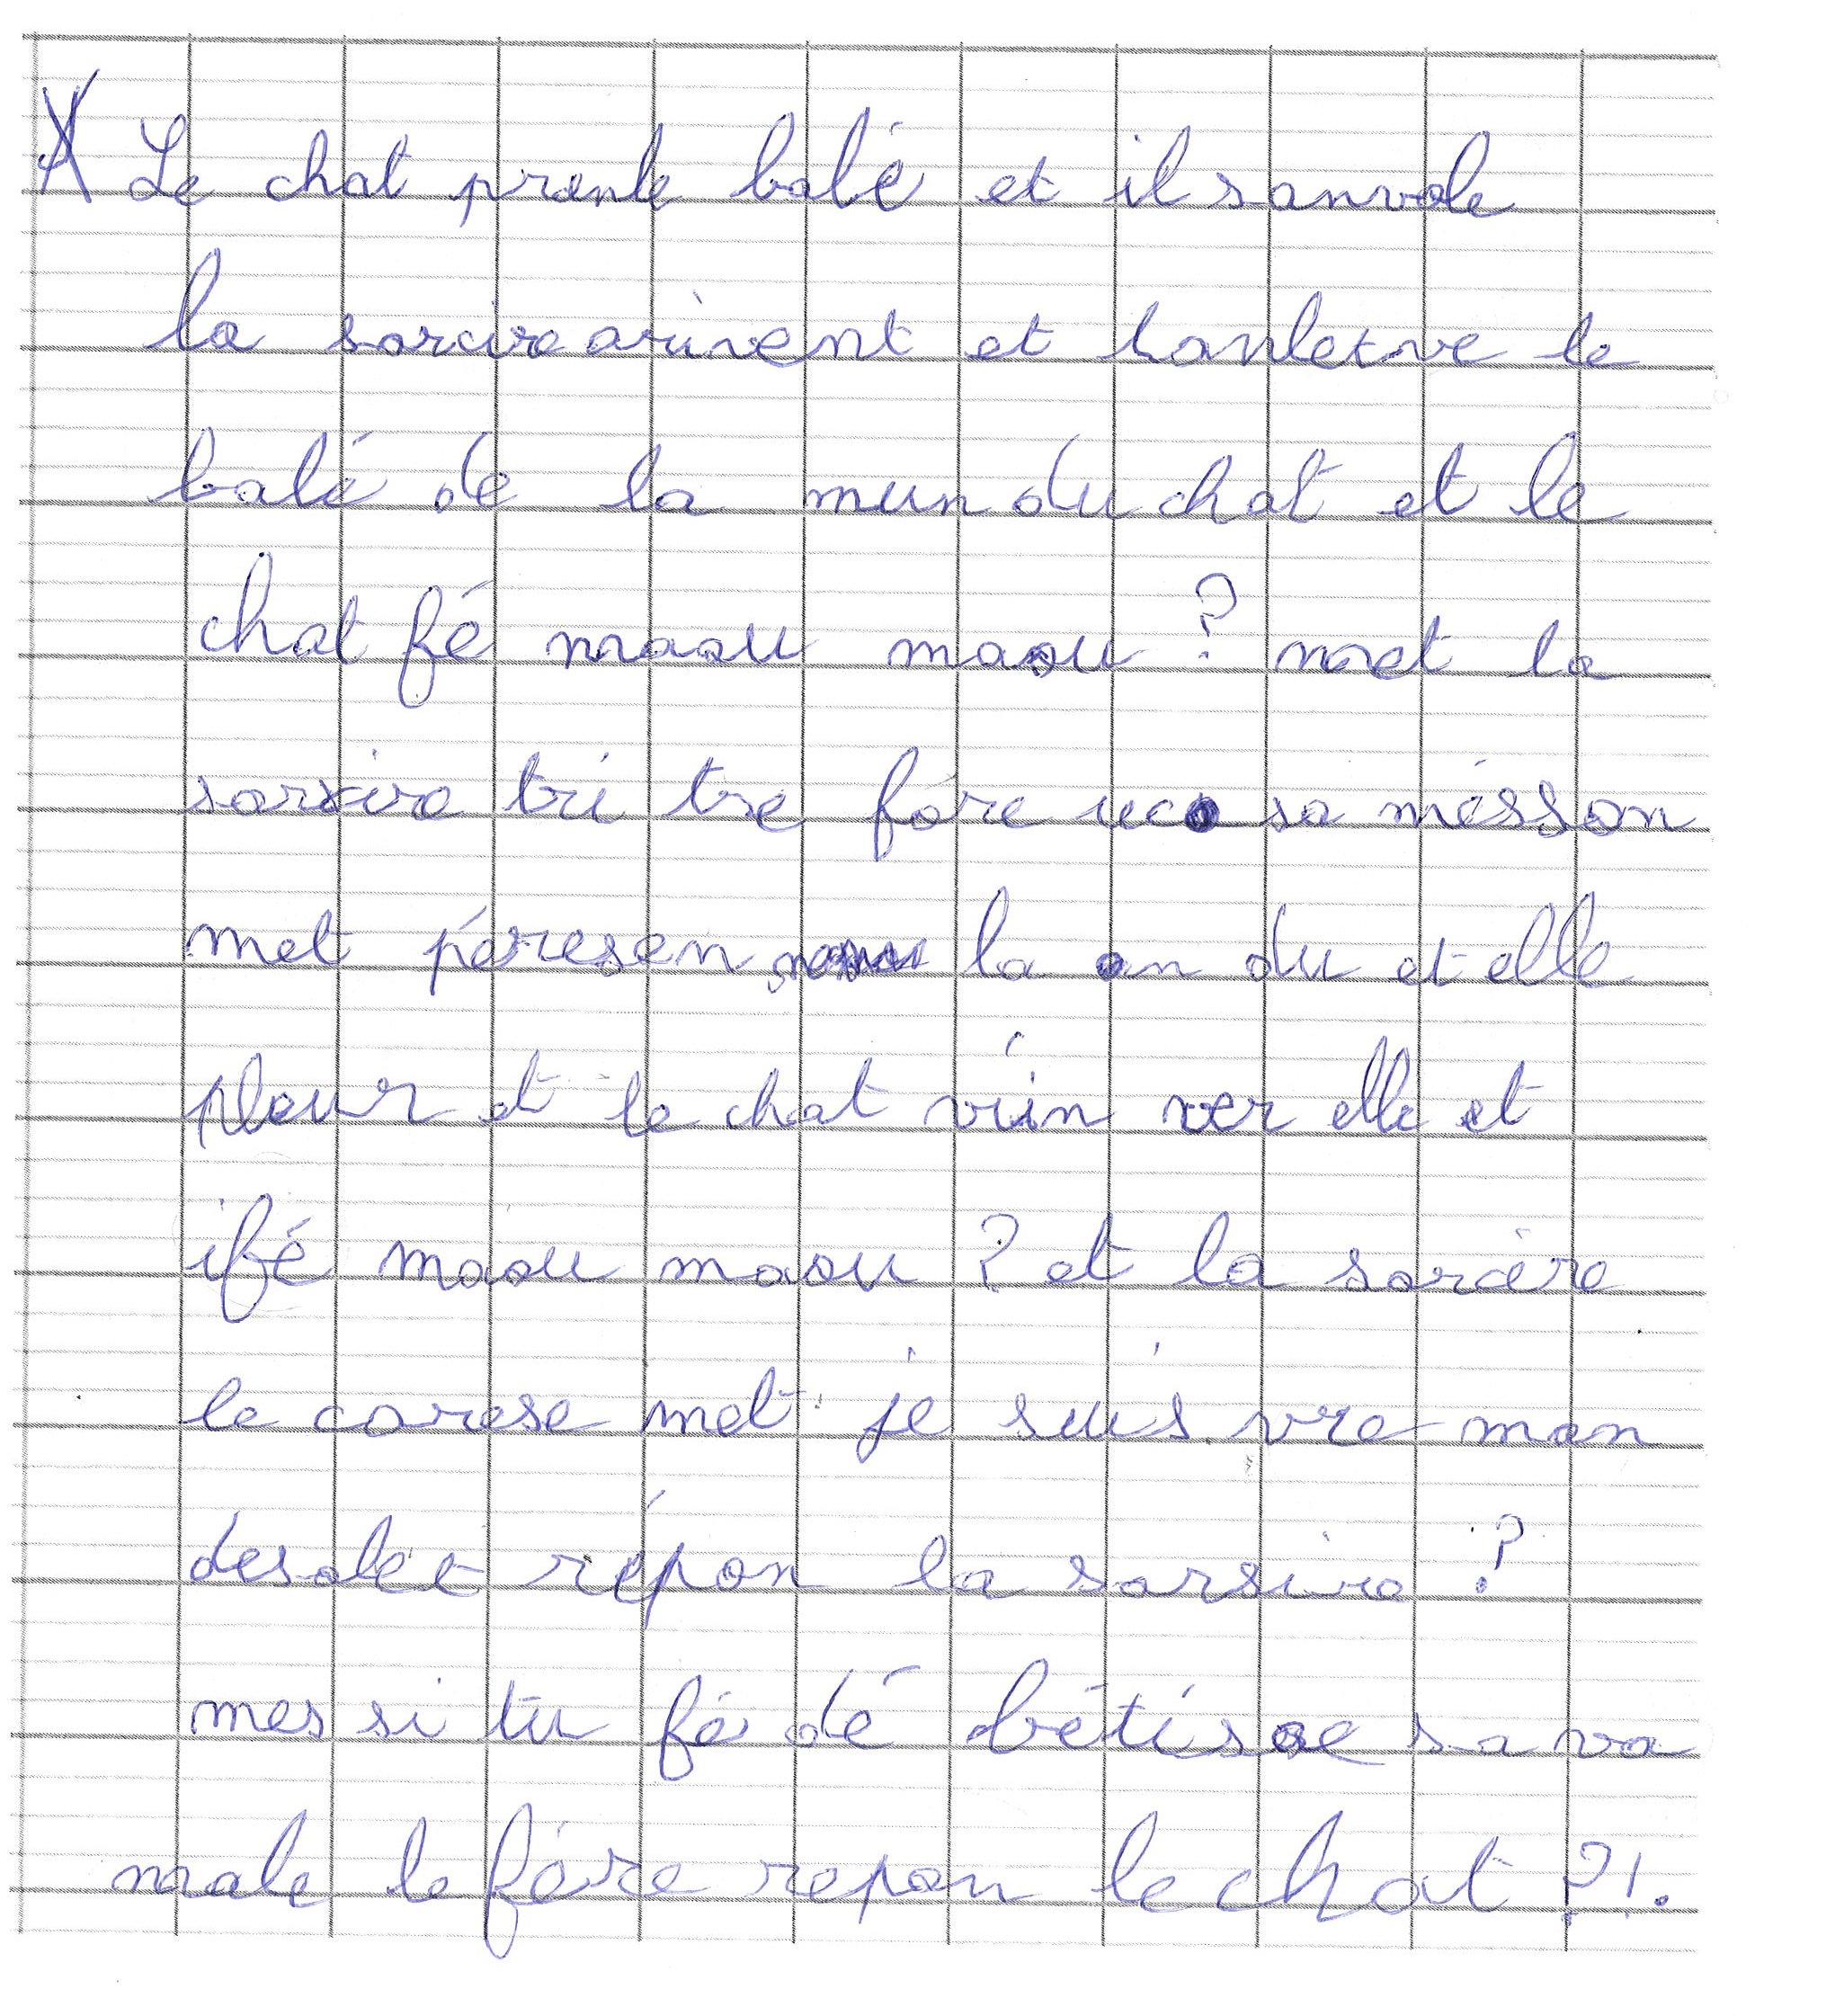 Le chat prenle balé et il sanvole
la sorcire arivent et lanlexve le
balé de la mun du chat et le
chat fé maou maou ? met la
sorsire tri tre fore sa mésson
met péresen la an du et elle
pleur et le chat viin ver elle et
ifé maou maou ? et la sorcère
le carese met je suis vre man
desolee répon la sorsire ?
mes si tu fé dé bétisse sa va
male le fére repon le chat ?!.